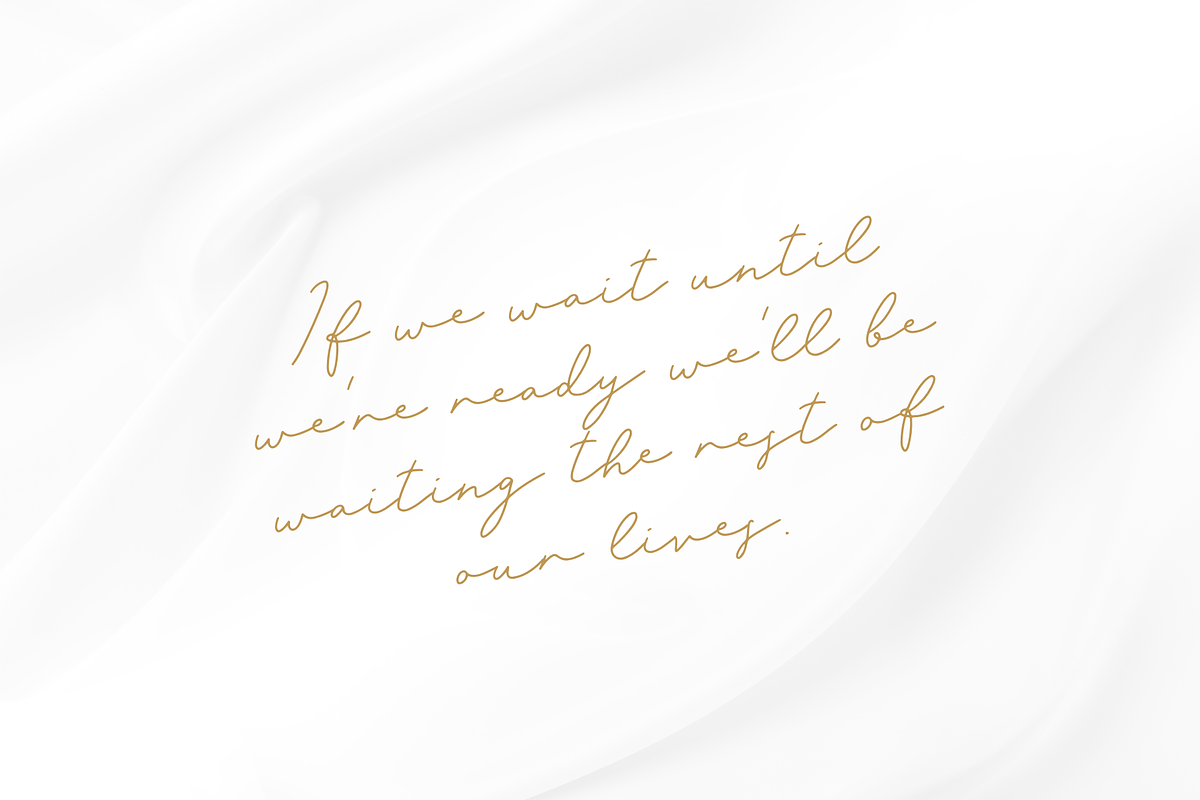 If we wait until
we're ready we'll be
waiting the rest of
our lives.